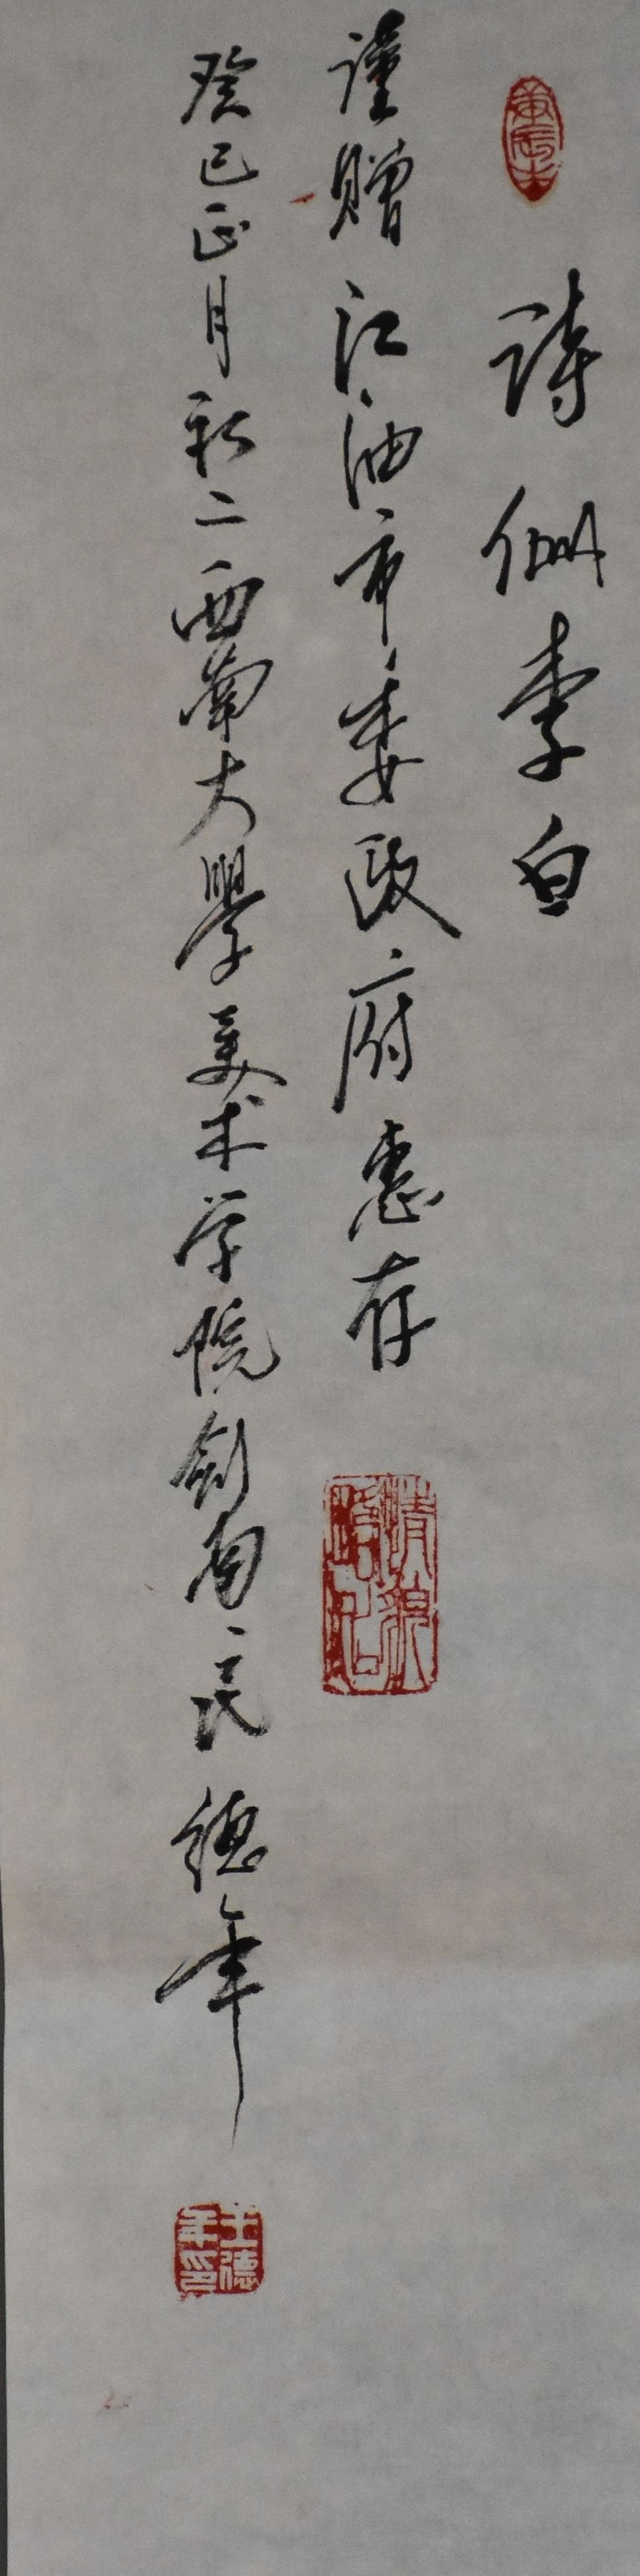 詩仙李白
謹贈江油市委政府惠存
癸巳正月初二西南大學美术学院剑南民德年
王德年印